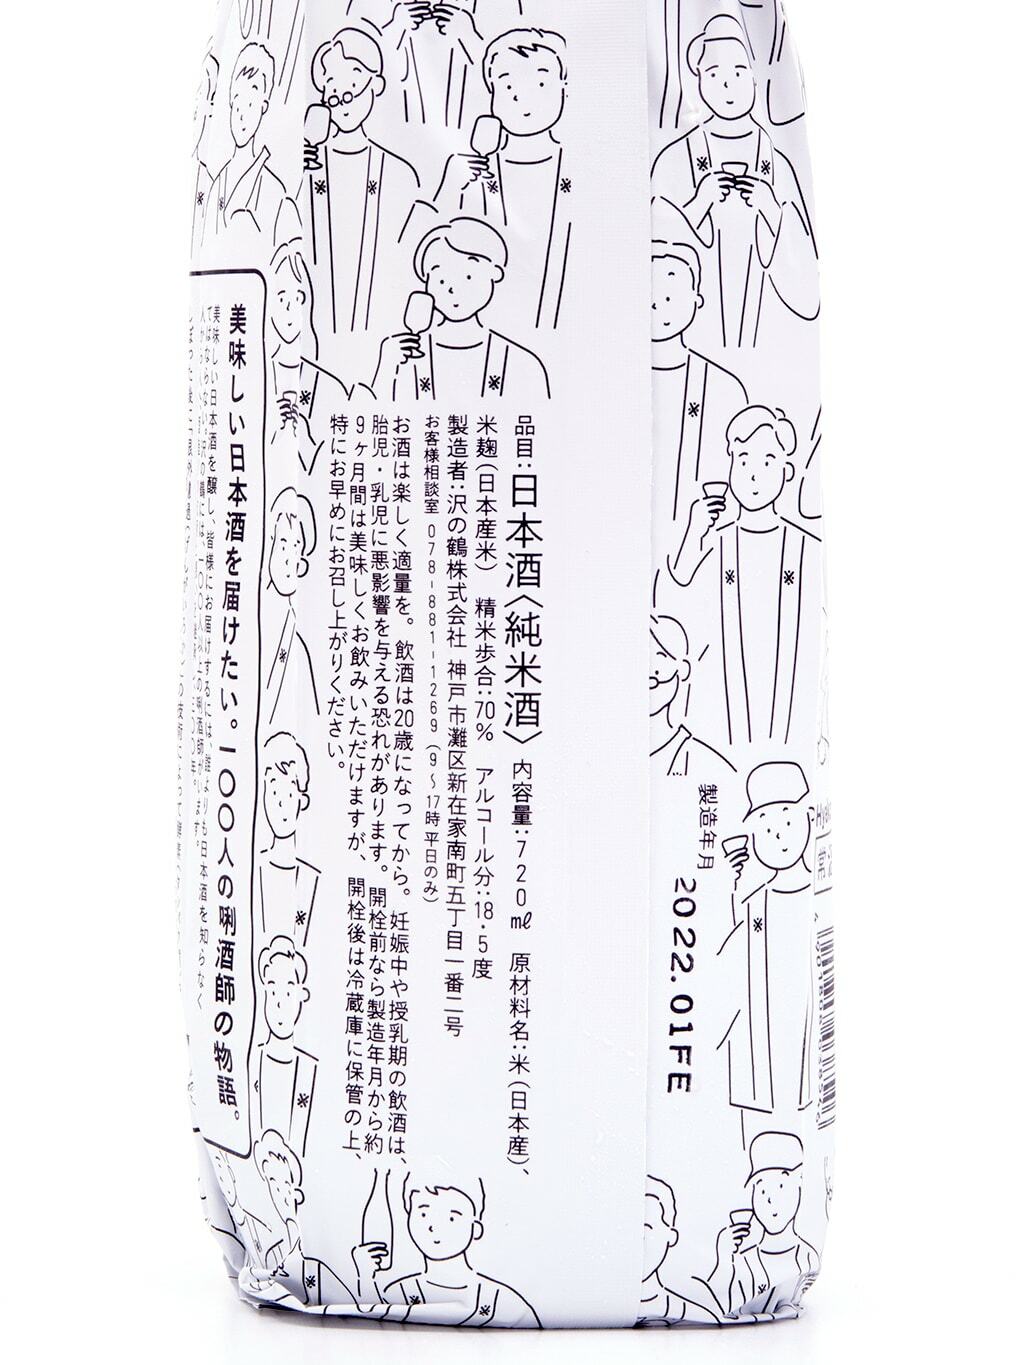 製造年月
2022.01FE
品目：日本酒〈純米酒〉 内容量：720ml 原材料名：米（日本産）、
米麹（日本産米） 精米歩合：70% アルコール分：18.5度
製造者：沢の鶴株式会社 神戸市灘区新在家南町五丁目一番二号
お客様相談室 078-881-1269（9～17時 平日のみ）
お酒は楽しく適量を。飲酒は20歳になってから。妊娠中や授乳期の飲酒は、
胎児・乳児に悪影響を与える恐れがあります。開栓前なら製造年月から約
9ヶ月間は美味しくお飲みいただけますが、開栓後は冷蔵庫に保管の上、
特にお早めにお召し上がりください。
美味しい日本酒を届けたい。一〇〇人の唎酒師の物語。
美味しい日本酒を醸し、皆様にお届けするには、誰よりも日本酒を知らなく
てはならない。沢の鶴には、一〇〇人以上の唎酒師がいます。